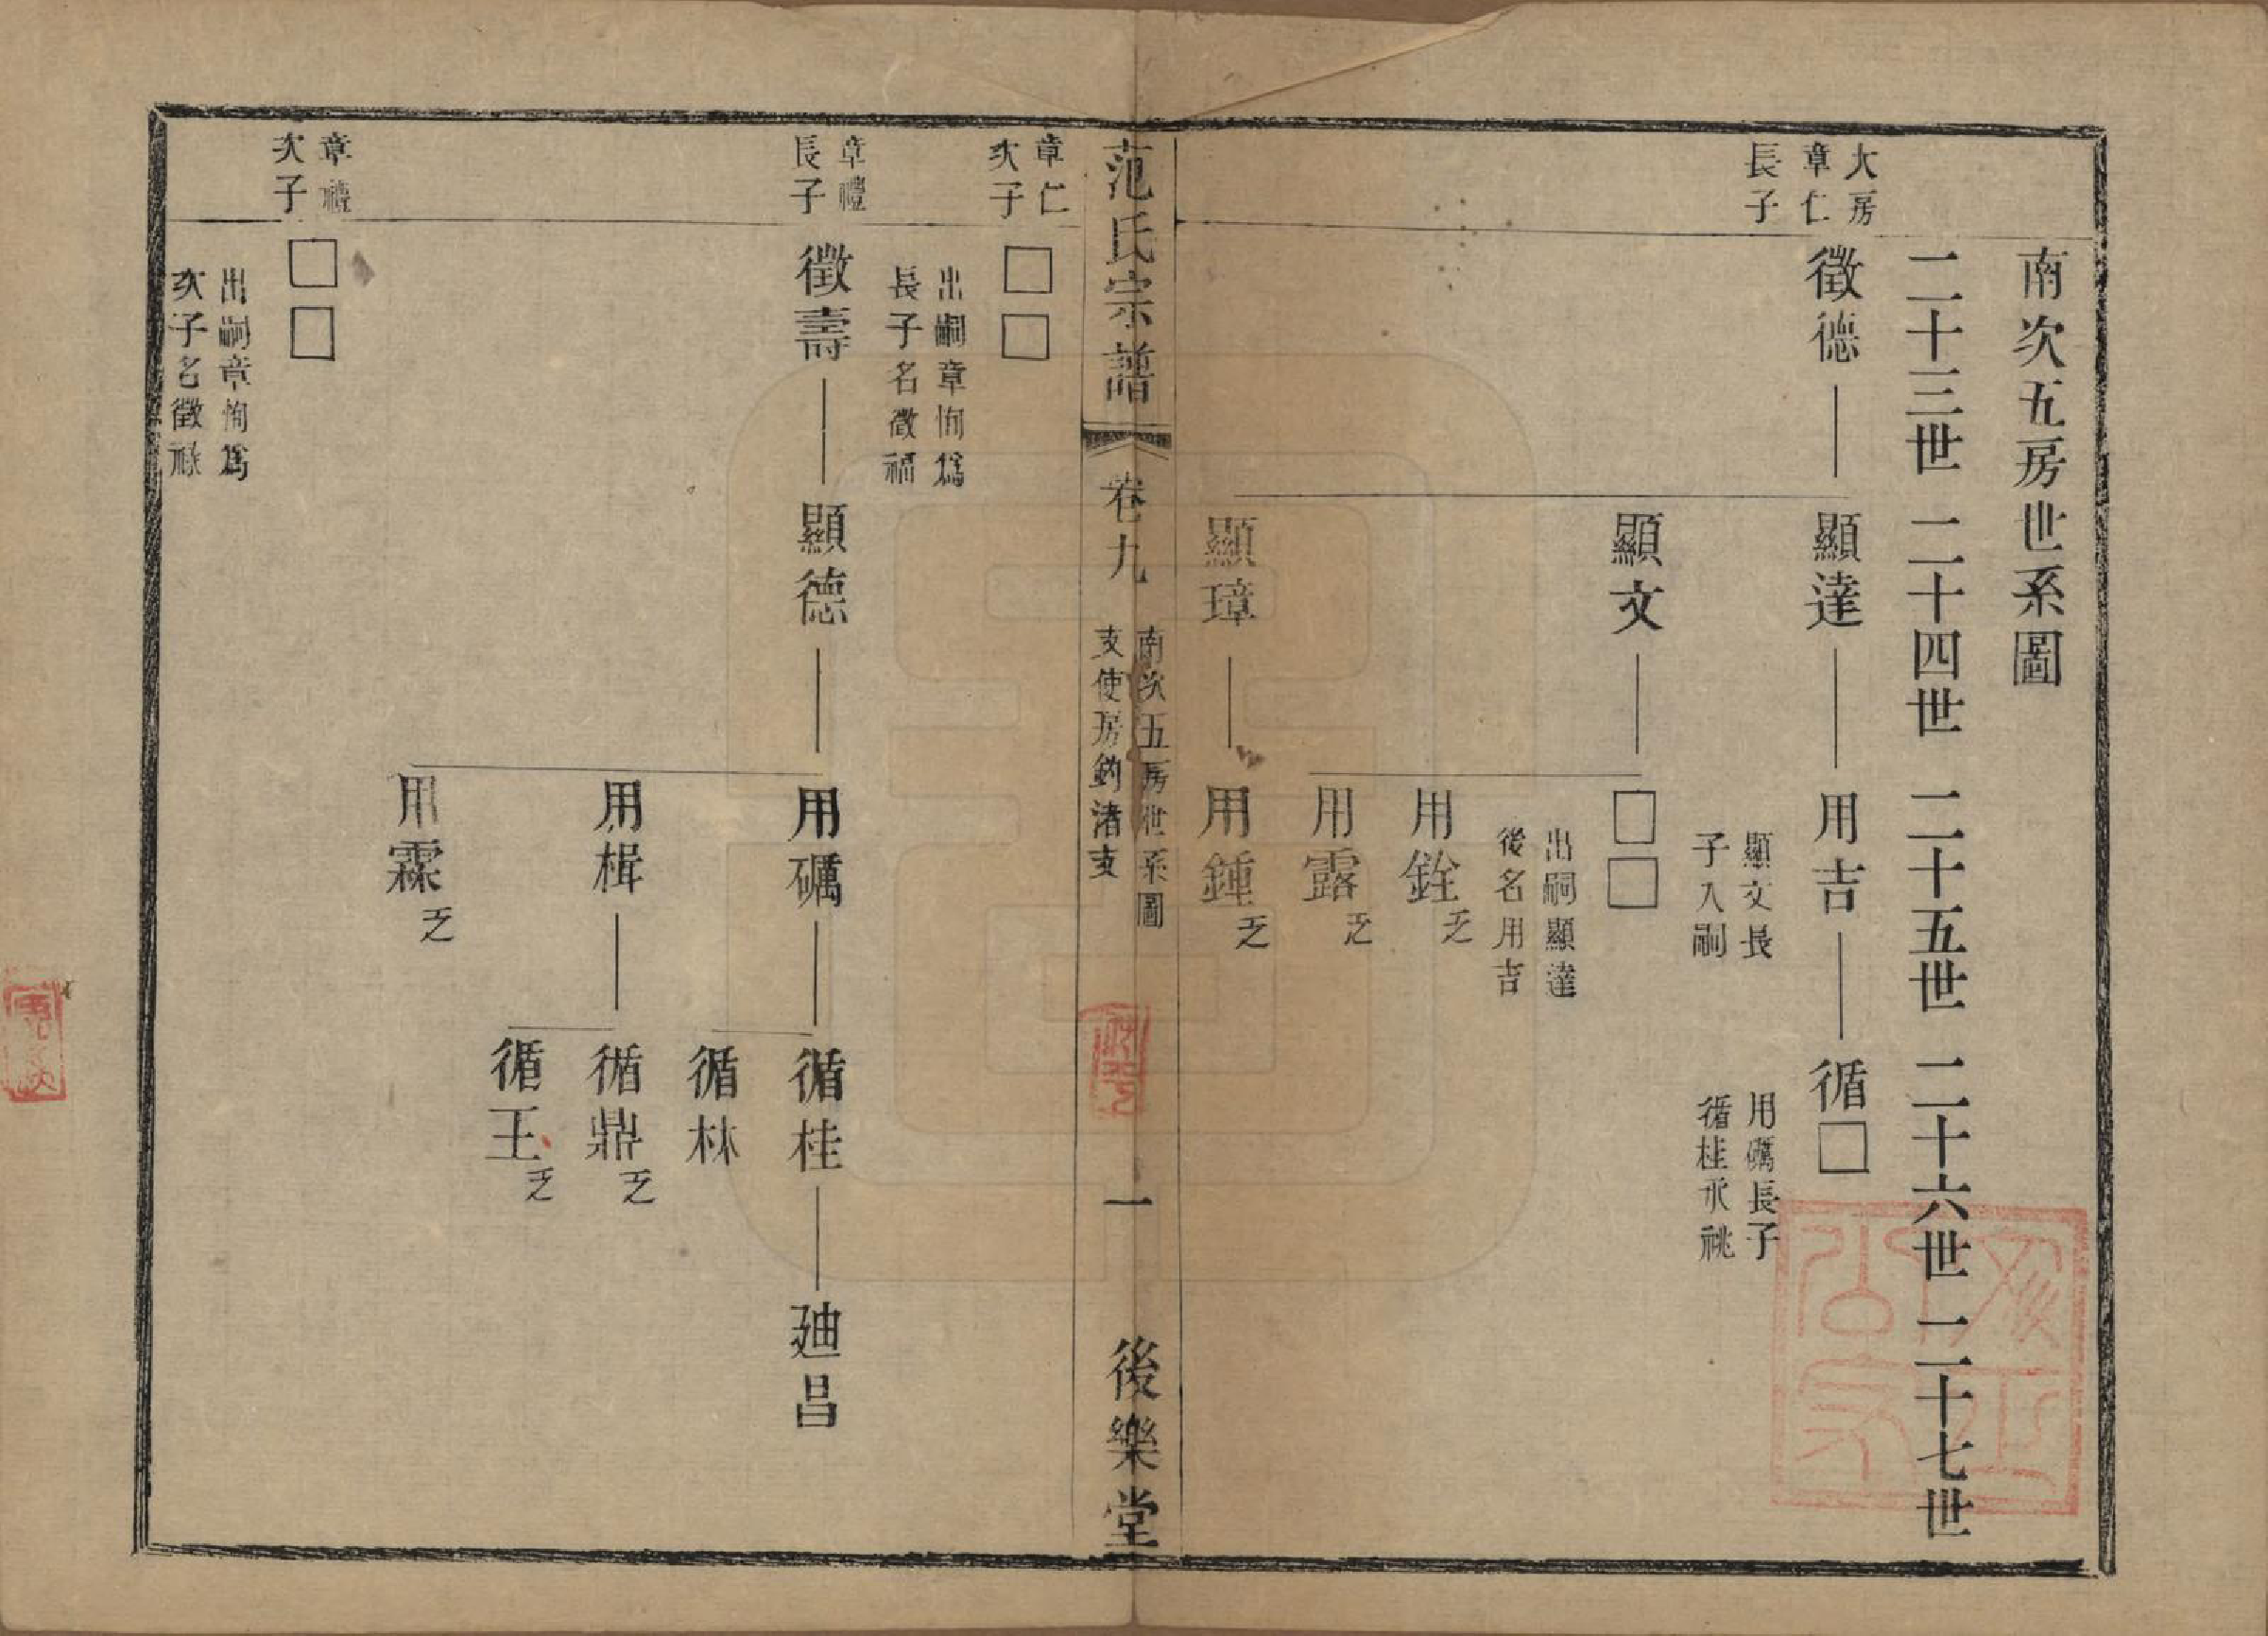 南次五房世系圖
二十三世 二十四世 二十五世 二十六世 二十七世
大房
章仁
長子
徵德 顯達 用吉 循□
顯文長
子入嗣
用礪長子
循桂承祧
顯文 □□
出嗣顯達
後名用吉
用銓 乏
用露 乏
顯璋 用鍾 乏
范氏宗譜 卷九
南次五房世系圖
支使房釣渚支
一
後樂堂
章仁
次子
□□
出嗣章恂爲
長子名徵福
章禮
長子
徵壽 顯德 用礪 循桂 廸昌
循林
用楫 循鼎 乏
循王 乏
用霖 乏
章禮
次子
□□
出嗣章恂爲
次子名徵祿